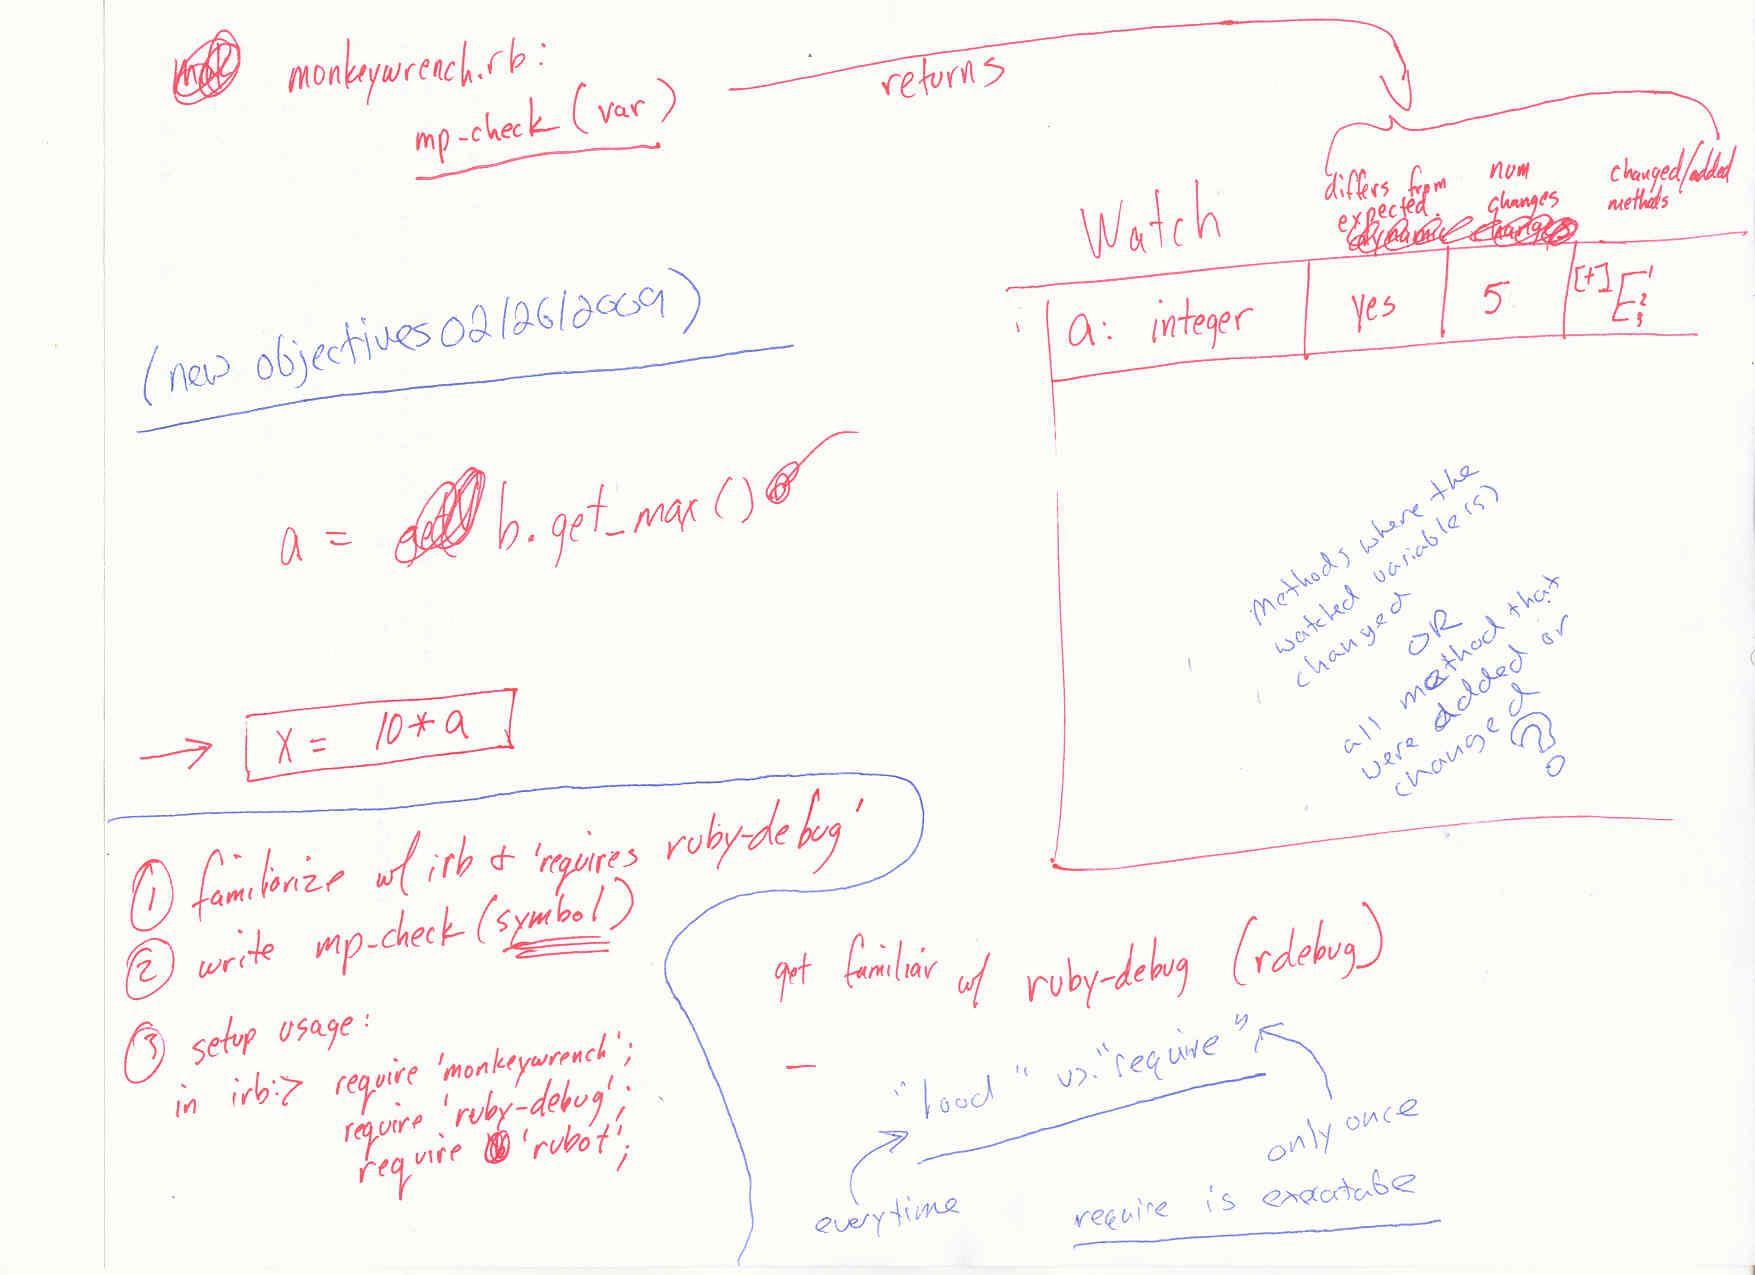 monkeywrench.rb:
mp-check (var)
returns
differs from
expected.
num
changes
changed/added
methods
Watch
a: integer
yes
5
[+]
1
2
3
(new objectives 02/26/2009)
a = b.get_max()
methods where the
watched variable(s)
changed
OR
all method that
were added or
changed
?
→ x = 10*a
① familiarize w/ irb + 'requires ruby-debug'
② write mp-check (symbol)
③ setup usage:
in irb:> require 'monkeywrench';
require 'ruby-debug';
require 'rubot';
get familiar w/ ruby-debug (rdebug)
—
"load" vs. "require"
everytime
only once
require is exeatabe